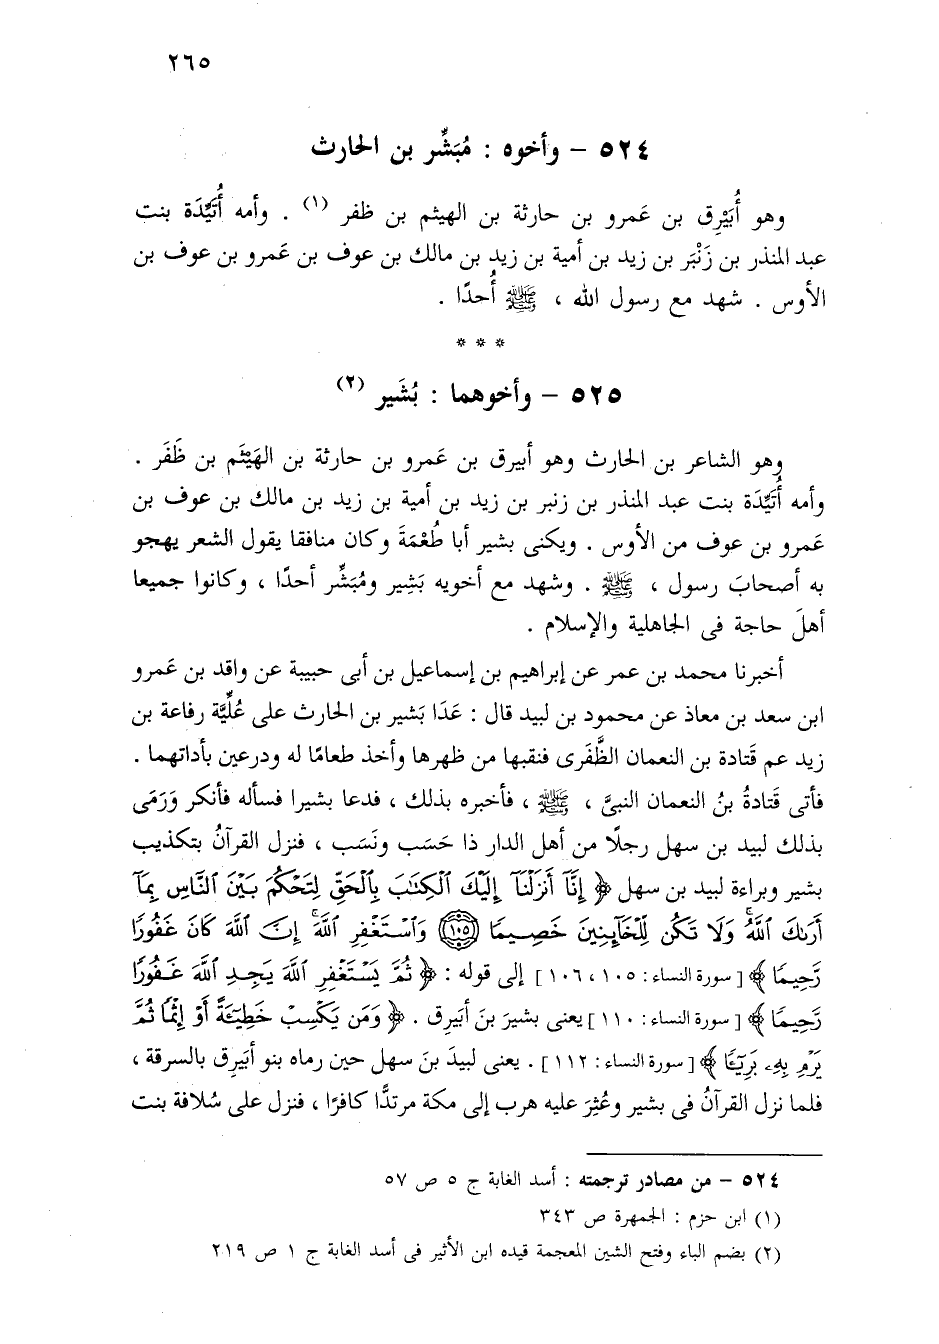 ٢٦٥
٥٢٤ - وأخوه : مُبَشِّر بن الحارث
وهو أُبَيْرِق بن عَمرو بن حارثة بن الهيثم بن ظفر (١) . وأمه أُثَيِّدَة بنت
عبد المنذر بن زَنْبَر بن زيد بن أمية بن زيد بن مالك بن عوف بن عَمرو بن عوف بن
الأوس . شهد مع رسول الله ، ﷺ أُحدًا .
* * *
٥٢٥ - وأخوهما : بُشَير (٢)
وهو الشاعر بن الحارث وهو أبيرق بن عَمرو بن حارثة بن الهَيْثَم بن ظَفَر .
وأمه أُثَيِّدَة بنت عبد المنذر بن زنبر بن زيد بن أمية بن زيد بن مالك بن عوف بن
عَمرو بن عوف من الأوس . ويكنى بشير أبا طُعْمَةَ وكان منافقا يقول الشعر يهجو
به أصحابَ رسول ، ﷺ . وشهد مع أخويه بَشِير ومُبَشِّر أحدًا ، وكانوا جميعا
أهلَ حاجة فى الجاهلية والإسلام .
أخبرنا محمد بن عمر عن إبراهيم بن إسماعيل بن أبى حبيبة عن واقد بن عَمرو
ابن سعد بن معاذ عن محمود بن لبيد قال : عَدَا بَشير بن الحارث على عُلِّيَّة رفاعة بن
زيد عم قَتادة بن النعمان الظَّفَرى فنقبها من ظهرها وأخذ طعامًا له ودرعين بأداتهما .
فأتى قَتادةُ بنُ النعمان النبىَّ ، ﷺ ، فأخبره بذلك ، فدعا بشيرا فسأله فأنكر وَرَمَى
بذلك لبيد بن سهل رجلًا من أهل الدار ذا حَسَب ونَسَب ، فنزل القرآنُ بتكذيب
بشير وبراءة لبيد بن سهل ﴿ إِنَّآ أَنزَلْنَآ إِلَيْكَ ٱلْكِتَٰبَ بِٱلْحَقِّ لِتَحْكُمَ بَيْنَ ٱلنَّاسِ بِمَآ
أَرَىٰكَ ٱللَّهُ ۚ وَلَا تَكُن لِّلْخَآئِنِينَ خَصِيمًا ۝١٠٥ وَٱسْتَغْفِرِ ٱللَّهَ ۖ إِنَّ ٱللَّهَ كَانَ غَفُورًا
رَّحِيمًا ﴾ [ سورة النساء : ١٠٥ ، ١٠٦ ] إلى قوله : ﴿ ثُمَّ يَسْتَغْفِرِ ٱللَّهَ يَجِدِ ٱللَّهَ غَفُورًا
رَّحِيمًا ﴾ [ سورة النساء : ١١٠ ] يعنى بشيرَ بنَ أبَيرِق . ﴿ وَمَن يَكْسِبْ خَطِيٓـَٔةً أَوْ إِثْمًا ثُمَّ
يَرْمِ بِهِۦ بَرِيٓـًٔا ﴾ [ سورة النساء : ١١٢ ] . يعنى لبيدَ بنَ سهل حين رماه بنو أبَيرِق بالسرقة ،
فلما نزل القرآنُ فى بشير وعُثِرَ عليه هرب إلى مكة مرتدًّا كافرًا ، فنزل على سُلافة بنت
٥٢٤ - من مصادر ترجمته : أسد الغابة ج ٥ ص ٥٧
(١) ابن حزم : الجمهرة ص ٣٤٣
(٢) بضم الباء وفتح الشين المعجمة قيده ابن الأثير فى أسد الغابة ج ١ ص ٢١٩